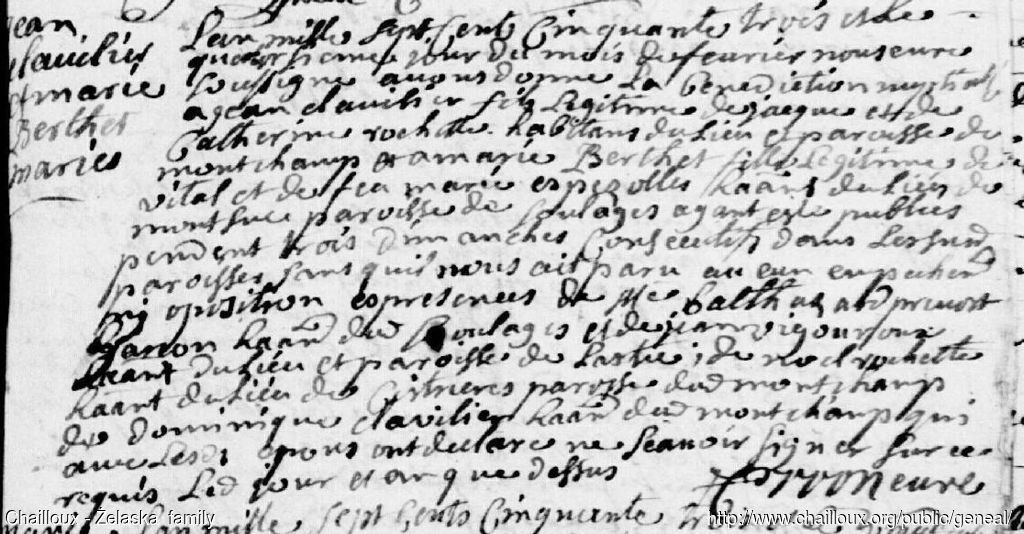 jean
clavilier
et marie
Berthet
mariés
Lan mille sept Cent Cinquante trois et le
jour du mois de feurier nous cure
soussigne auons donne La benediction
a jean clavilier fils Legitime de jacque et de
Catherine rochette habitans du Lieu et paroisse de
montchamp et a marie Berthet fille Legitime de
vital et de feu marie espezolles haant du Lieu de
montsuc paroisse de soulages ayant este publies
pendent trois dimanches Consecutifs dans Lesd
paroisses sans quil nous ait paru aucun empechem
ni oposition es presences de Me Balthazard preuost
haant dud Soulages et de jean vigouroux
haant du Lieu et paroisse de Lastic, de noel rochette
haant du Lieu de Cistrieres paroisse dud montchamp
de dominique clavilier haan dud montchamp qui
auec Lesd epous ont declare ne scauoir signer sur ce
requis Led jour et an que dessus
cure
Lan mille sept Cents Cinquante
Chailloux - Zelaska family
http://www.chailloux.org/public/geneal/